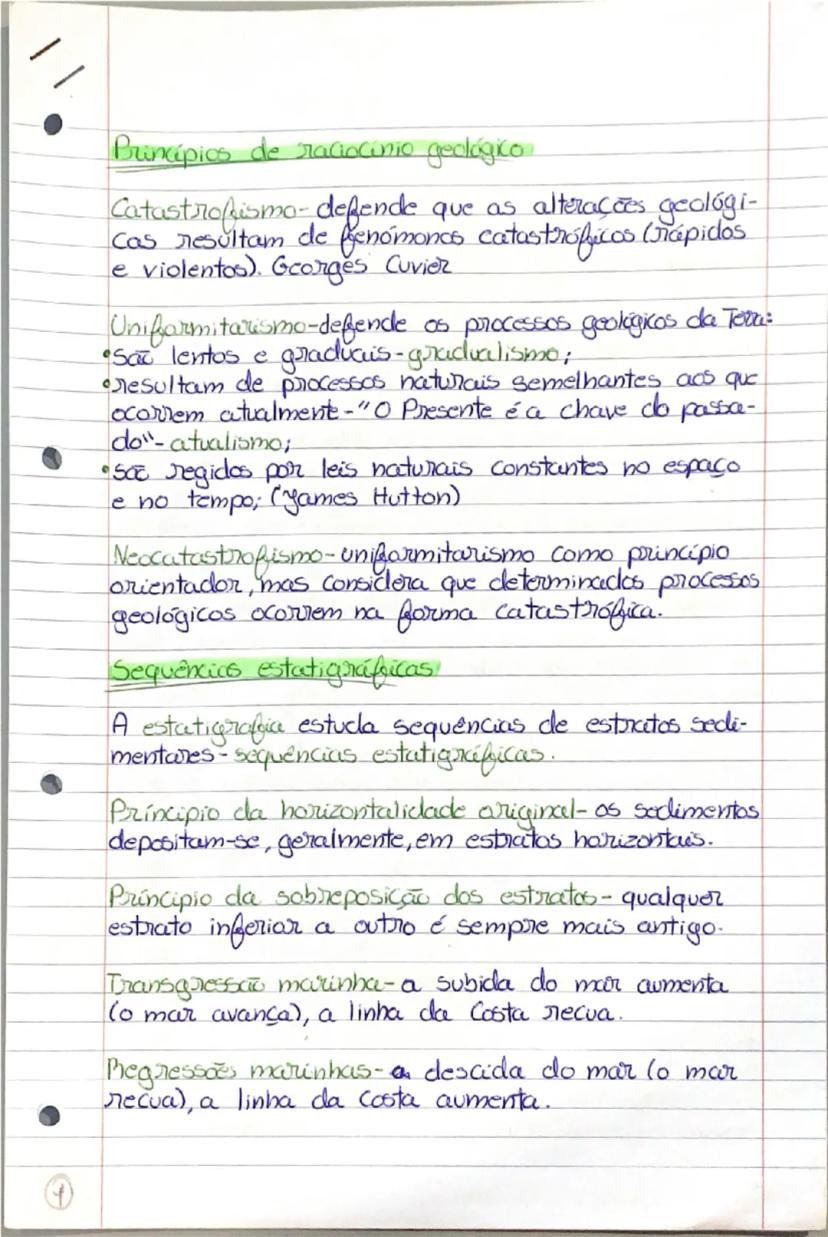 Princípios de raciocínio geológico
Catastrofismo-defende que as alterações geológi-
cas resultam de fenómonos catastróficos (rápidos
e violentos). Georges Cuvier
Uniformitarismo-defende os processos geológicos da Terra:
•são lentos e graduais-gradualismo;
•resultam de processos naturais semelhantes aos que
ocorrem atualmente-"O Presente é a chave do passa-
do"-atualismo;
•são regidos por leis naturais constantes no espaço
e no tempo; (James Hutton)
Neocatastrofismo-uniformitarismo como princípio
orientador, mas considera que determinados processos
geológicos ocorrem na forma catastrófica.
Sequências estatigráficas
A estatigrafia estuda sequências de estratos sedi-
mentares-sequências estatigráficas.
Príncipio da horizontalidade original-os sedimentos
depositam-se, geralmente, em estratos horizontais.
Príncipio da sobreposição dos estratos-qualquer
estrato inferior a outro é sempre mais antigo.
Transgressão marinha-a subida do mar aumenta
(o mar avança), a linha da Costa recua.
Regressões marinhas-a descida do mar (o mar
recua), a linha da Costa aumenta.
1